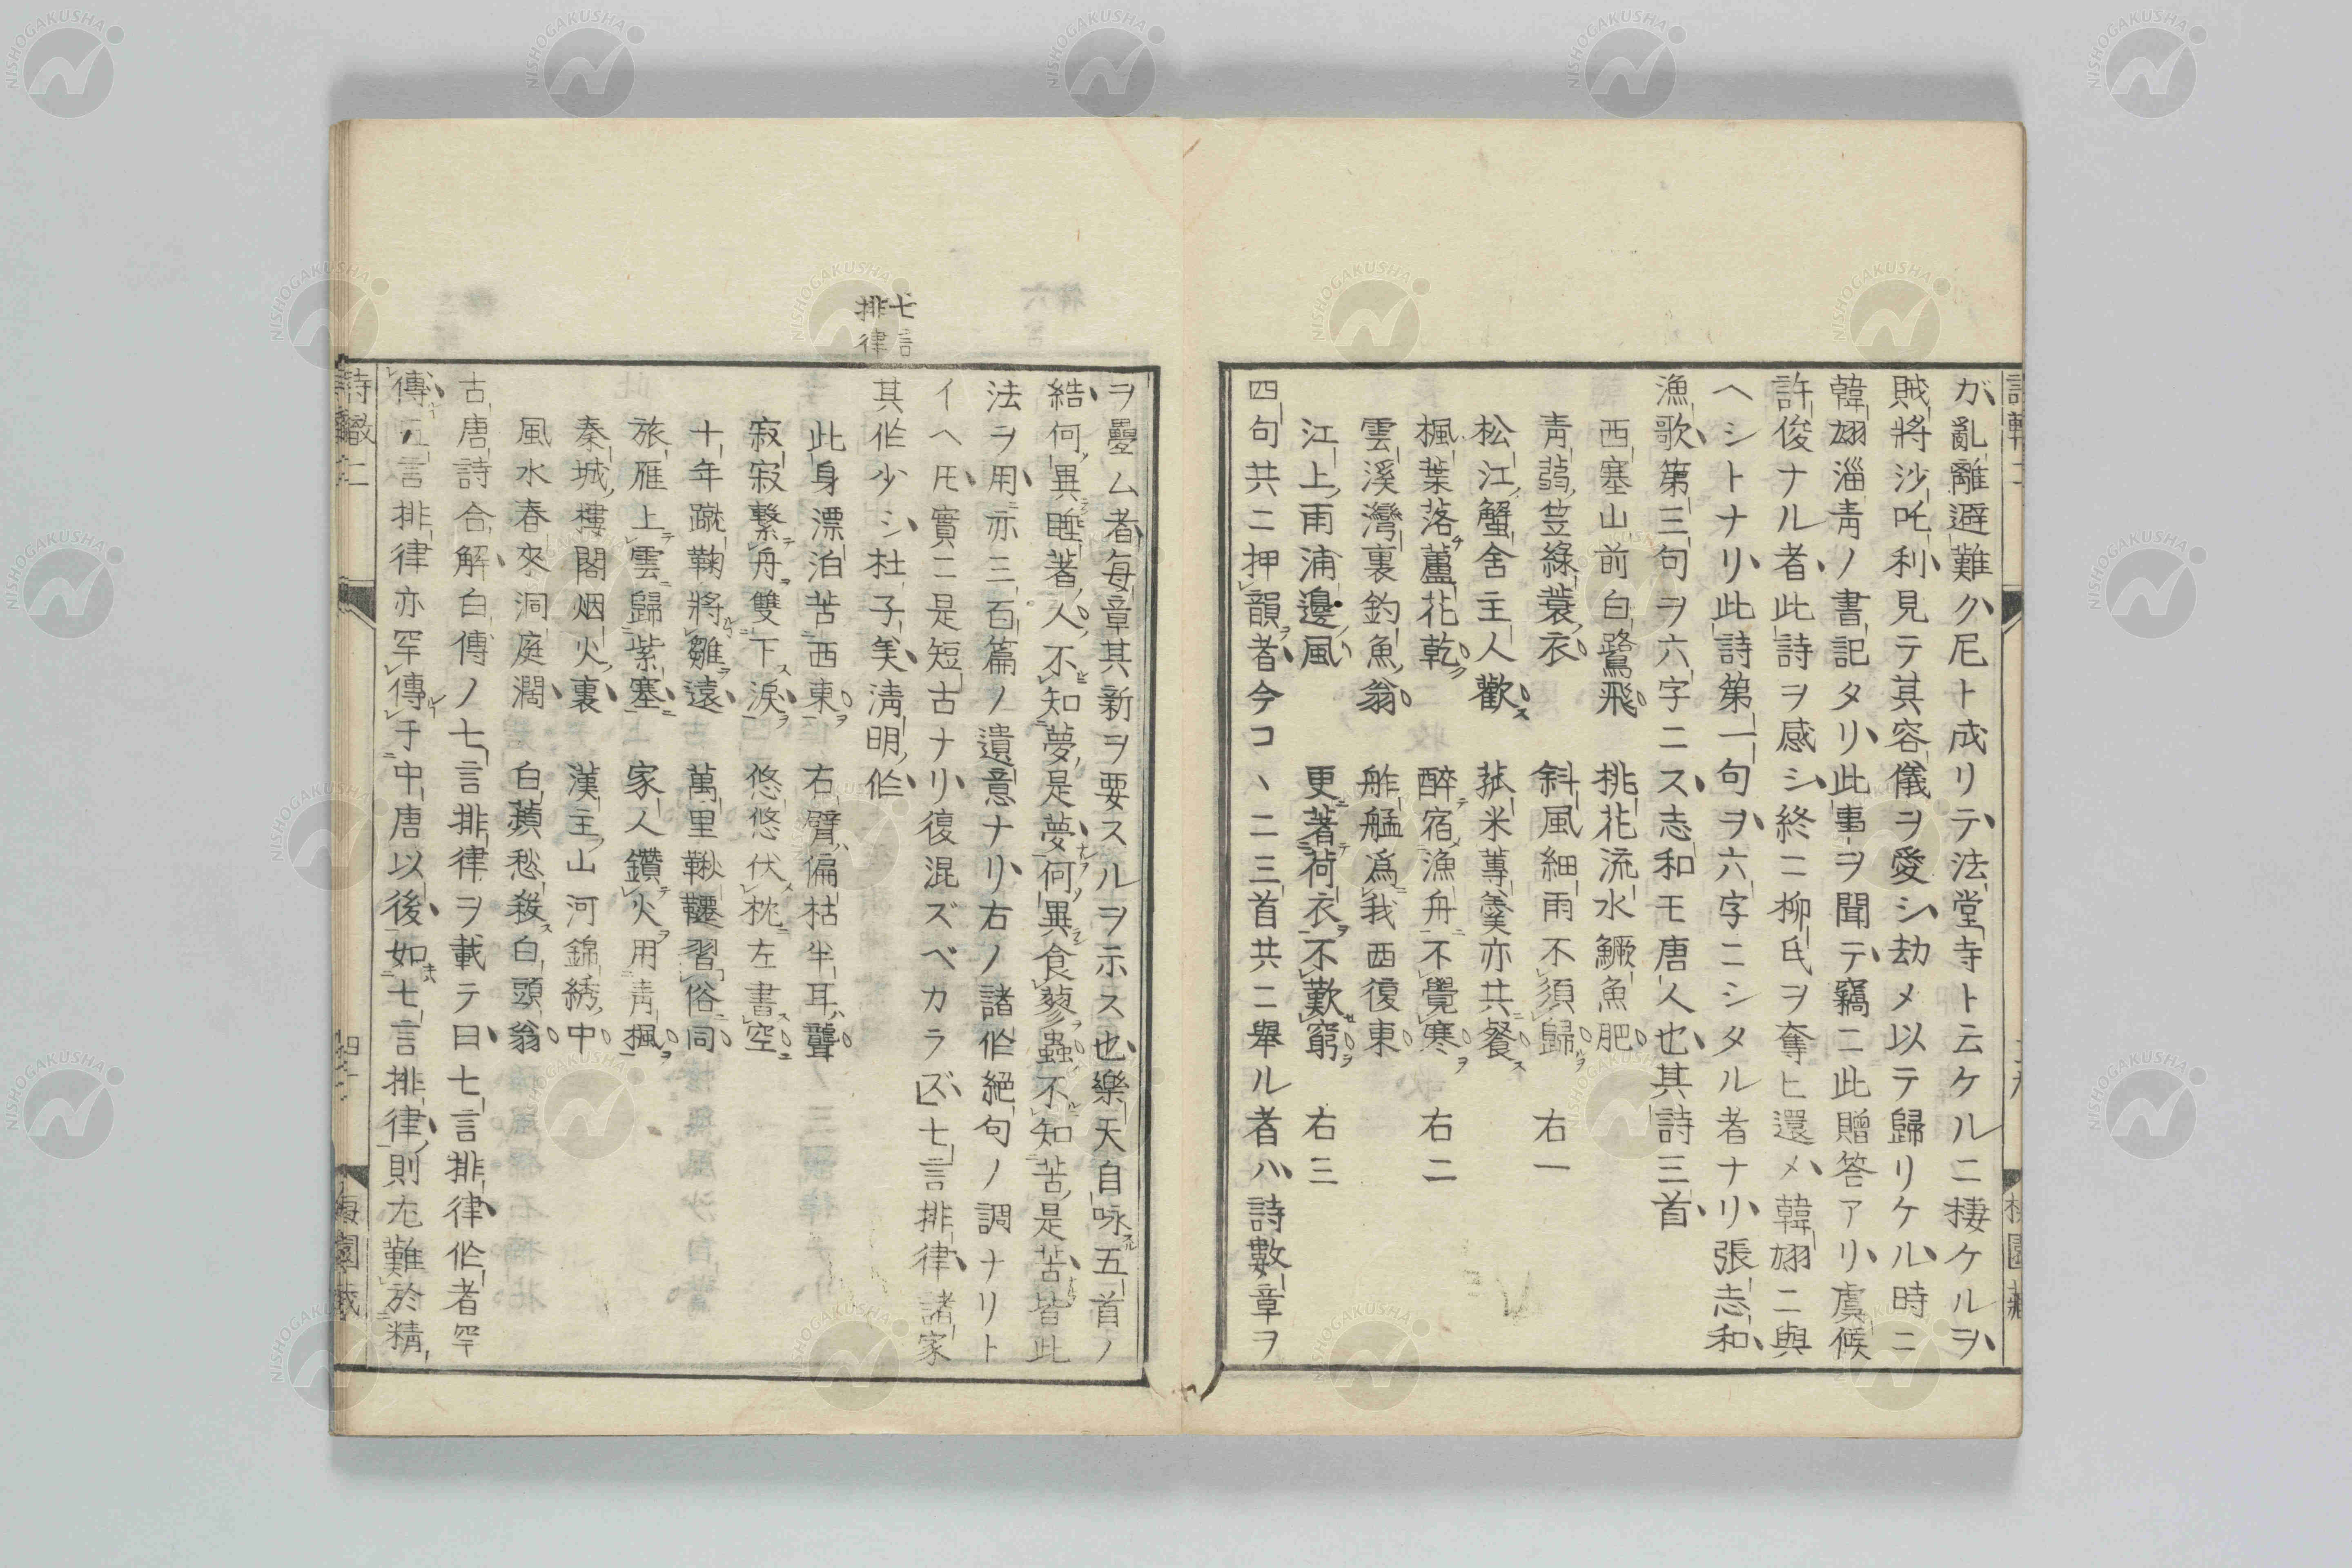 ガ亂離避難ク尼ト成リテ法堂寺ト云ケルニ棲ケルヲ
賊將沙吒利見テ其容儀ヲ愛シ劫メ以テ歸リケル時ニ
韓翃淄青ノ書記タリ此事ヲ聞テ竊ニ此贈答アリ虞候
許俊ナル者此詩ヲ感シ終ニ柳氏ヲ奪ヒ還メ韓翃ニ與
ヘシトナリ此詩第一句ヲ六字ニシタル者ナリ張志和
漁歌第三句ヲ六字ニス志和モ唐人也其詩三首
西塞山前白鷺飛 桃花流水鱖魚肥
青蒻笠綠蓑衣 斜風細雨不須歸 右一
松江蟹舍主人歡 菰米蓴羹亦共餐
楓葉落蘆花乾 醉宿漁舟不覺寒 右二
雲溪灣裏釣魚翁 舴艋爲我西復東
江上雨浦邊風 更著荷衣不歎窮 右三
四句共ニ押韻者今コヽニ三首共ニ舉ル者ハ詩數章ヲ
ヲ疊ム者每章其新ヲ要スルヲ示ス也樂天自咏五首ノ
結何異睡著人不知夢是夢何異食蓼蟲不知苦是苦皆此
法ヲ用亦三百篇ノ遺意ナリ右ノ諸作絕句ノ調ナリト
イヘ𪜈實ニ是短古ナリ復混ズベカラズ七言排律諸家
七言
排律
其作少シ杜子美淸明作
此身漂泊苦西東 右臂偏枯半耳聾
寂寂繫舟雙下淚 悠悠伏枕左書空
十年蹴鞠將雛遠 萬里鞦韆習俗同
旅雁上雲歸紫塞 家人鑽火用靑楓
秦城樓閣烟火裏 漢主山河錦綉中
風水春來洞庭濶 白蘋愁殺白頭翁
古唐詩合解白傳ノ七言排律ヲ載テ曰七言排律作者罕
傳五言排律亦罕傳于中唐以後如七言排律則尤難於精